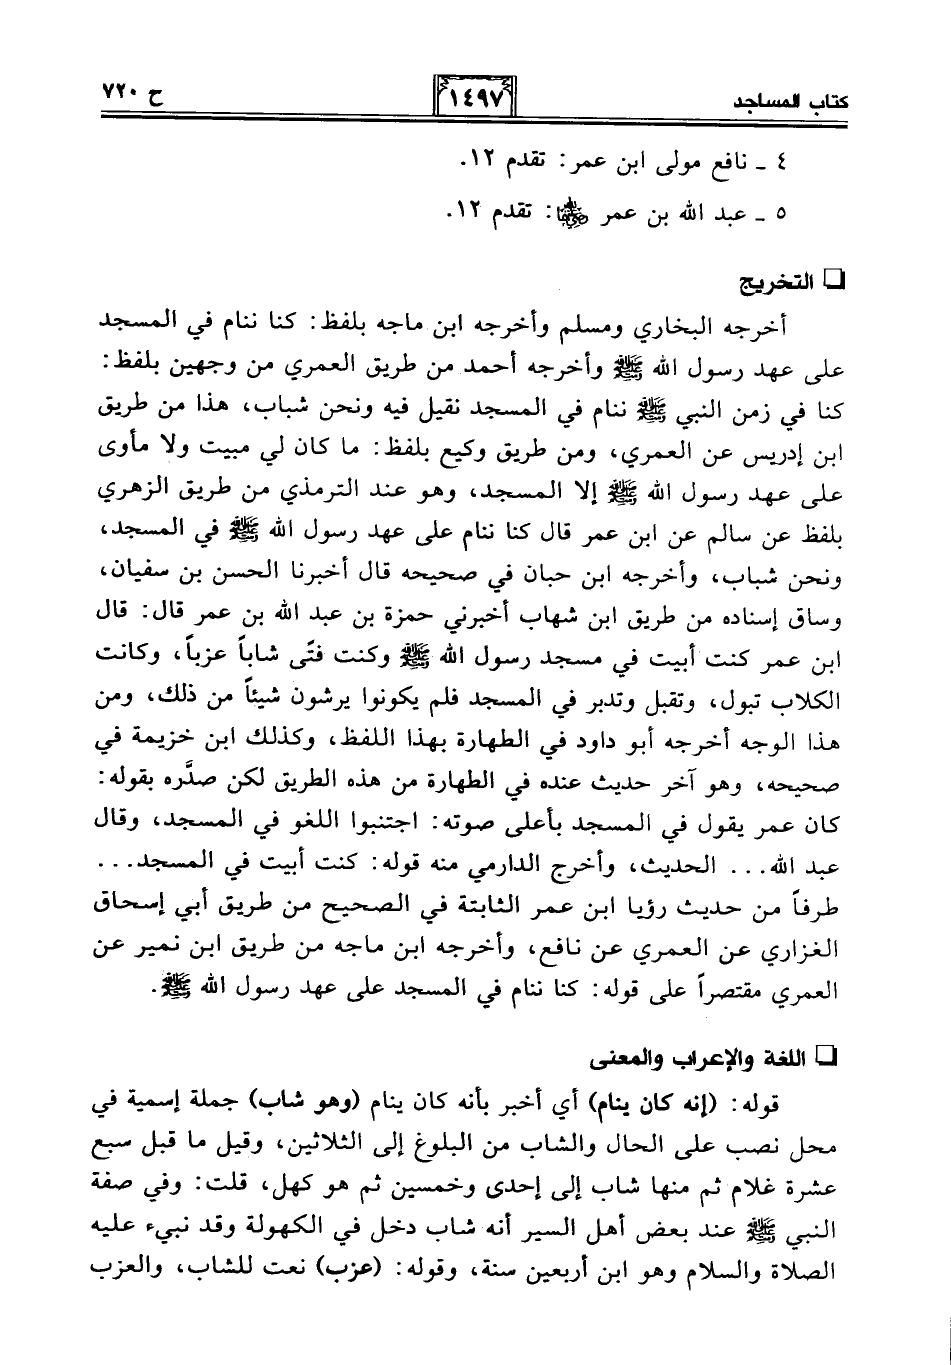 كتاب المساجد ١٤٩٧ ح ٧٢٠
٤ ـ نافع مولى ابن عمر: تقدم ١٢.
٥ ـ عبد الله بن عمر رضي الله عنهما: تقدم ١٢.
❑ التخريج
أخرجه البخاري ومسلم وأخرجه ابن ماجه بلفظ: كنا ننام في المسجد
على عهد رسول الله ﷺ وأخرجه أحمد من طريق العمري من وجهين بلفظ:
كنا في زمن النبي ﷺ ننام في المسجد نقيل فيه ونحن شباب، هذا من طريق
ابن إدريس عن العمري، ومن طريق وكيع بلفظ: ما كان لي مبيت ولا مأوى
على عهد رسول الله ﷺ إلا المسجد، وهو عند الترمذي من طريق الزهري
بلفظ عن سالم عن ابن عمر قال كنا ننام على عهد رسول الله ﷺ في المسجد،
ونحن شباب، وأخرجه ابن حبان في صحيحه قال أخبرنا الحسن بن سفيان،
وساق إسناده من طريق ابن شهاب أخبرني حمزة بن عبد الله بن عمر قال: قال
ابن عمر كنت أبيت في مسجد رسول الله ﷺ وكنت فتًى شاباً عزباً، وكانت
الكلاب تبول، وتقبل وتدبر في المسجد فلم يكونوا يرشون شيئاً من ذلك، ومن
هذا الوجه أخرجه أبو داود في الطهارة بهذا اللفظ، وكذلك ابن خزيمة في
صحيحه، وهو آخر حديث عنده في الطهارة من هذه الطريق لكن صدَّره بقوله:
كان عمر يقول في المسجد بأعلى صوته: اجتنبوا اللغو في المسجد، وقال
عبد الله... الحديث، وأخرج الدارمي منه قوله: كنت أبيت في المسجد...
طرفاً من حديث رؤيا ابن عمر الثابتة في الصحيح من طريق أبي إسحاق
الغزاري عن العمري عن نافع، وأخرجه ابن ماجه من طريق ابن نمير عن
العمري مقتصراً على قوله: كنا ننام في المسجد على عهد رسول الله ﷺ.
❑ اللغة والإعراب والمعنى
قوله: (إنه كان ينام) أي أخبر بأنه كان ينام (وهو شاب) جملة إسمية في
محل نصب على الحال والشاب من البلوغ إلى الثلاثين، وقيل ما قبل سبع
عشرة غلام ثم منها شاب إلى إحدى وخمسين ثم هو كهل، قلت: وفي صفة
النبي ﷺ عند بعض أهل السير أنه شاب دخل في الكهولة وقد نبيء عليه
الصلاة والسلام وهو ابن أربعين سنة، وقوله: (عزب) نعت للشاب، والعزب